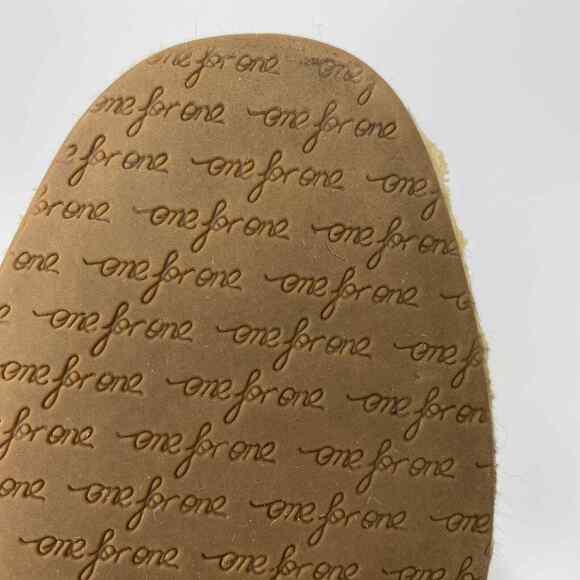 one for one
one for one one for one
for one one for one one
for one one for one one for one
one one for one one for one
one for one one for one one for
one for one one for one one for one
for one one for one one for one
one one for one one for one one
one for one one for one